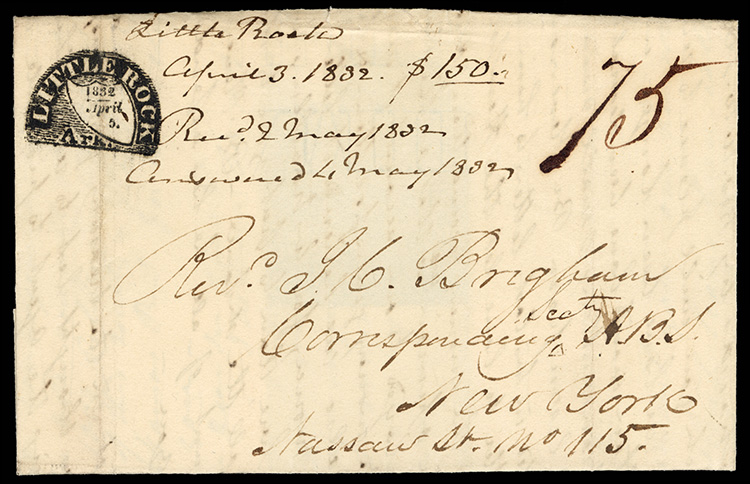 LITTLE ROCK
1832
April
5.
Ark.
Little Rock
April 3. 1832. $150.
Recd. 2 May 1832
Answered 4 May 1832
75
Revd J. C. Brigham
Corresponding Secty A.B.S.
New York
Nassau St. No 115.